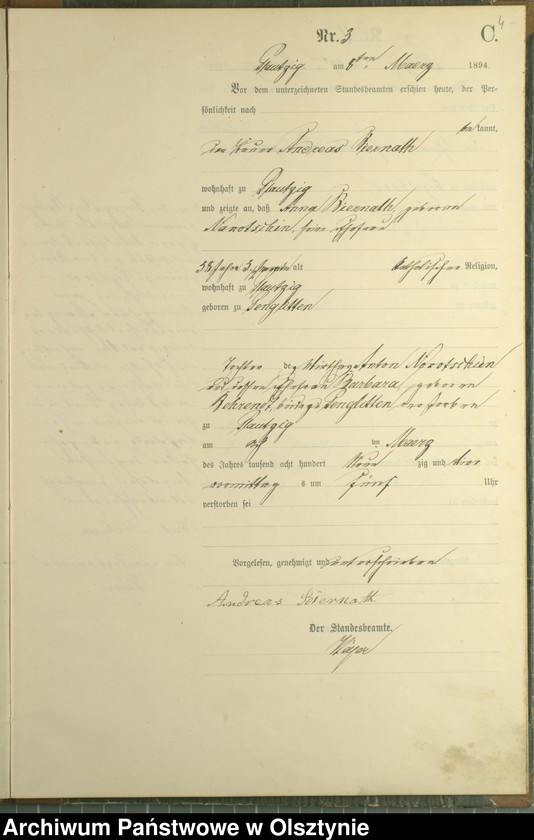 4
Nr. 3 C.
Plautzig am 8ten Maerz 1894.
Vor dem unterzeichneten Standesbeamten erschien heute, der Per-
sönlichkeit nach
bekannt,
Andreas Biernath
wohnhaft zu Plautzig
und zeigte an, daß Anna Biernath, geborene
seine Ehefrau
38 Jahre 3 Monate alt katholischer Religion,
wohnhaft zu Plautzig
geboren zu Lenglitten
Tochter des Wirths Anton
und dessen Ehefrau Barbara, geborene
Behrendt, beide zu Lenglitten verstorben
zu Plautzig
am ten Maerz
des Jahres tausend acht hundert Neun zig und vier
vormittags um fünf Uhr
verstorben sei
Vorgelesen, genehmigt und unterschrieben
Andreas Biernath
Der Standesbeamte.
Archiwum Państwowe w Olsztynie